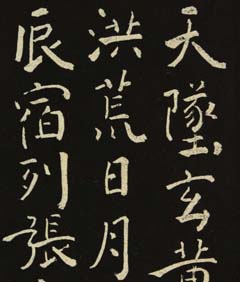 天墜玄黄
洪荒日月
辰宿列張